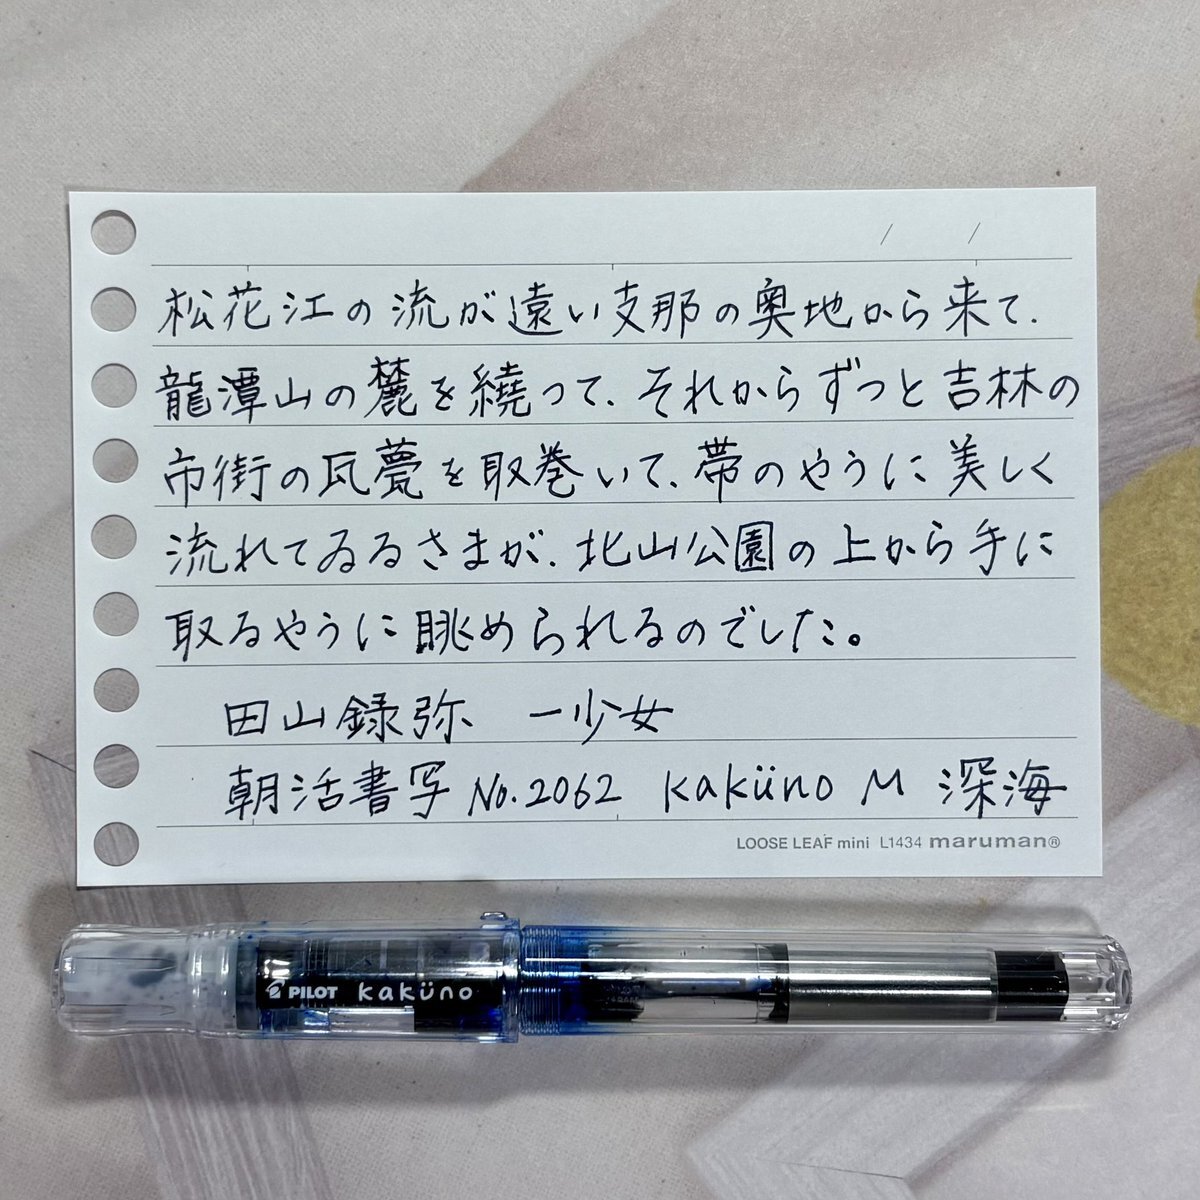 / /
松花江の流が遠い支那の奥地から来て、
龍潭山の麓を繞って、それからずつと吉林の
市街の瓦甍を取巻いて、帯のやうに美しく
流れてゐるさまが、北山公園の上から手に
取るやうに眺められるのでした。
田山録弥 一少女
朝活書写 No.2062 kaküno M 深海
LOOSE LEAF mini L1434 maruman®
PILOT kaküno